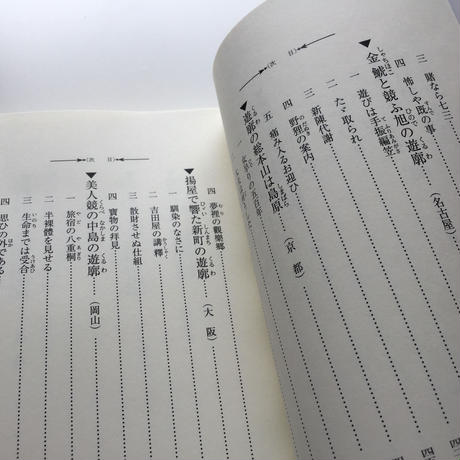 (次目)
三 賭なら七三
四 怖しや既の事
▼金鯱と競ふ旭の遊廓 (名古屋)
一 遊びは手振編笠
二 たゞ取られ
三 新陳代謝
四 野狸の案内
五 痛み入るお迎ひ
▼遊廓の総本山は島原 (京都)
(次目)
四 夢裡の觀樂郷
▼揚屋で響た新町の遊廓 (大阪)
一 馴染のなさに
二 吉田屋の講釋
三 散財させぬ仕組
四 寶物の拜見
▼美人競の中島の遊廓 (岡山)
一 旅宿の八重桐
二 半裸體を見せる
三 生命までは受合
四 思ひの外である